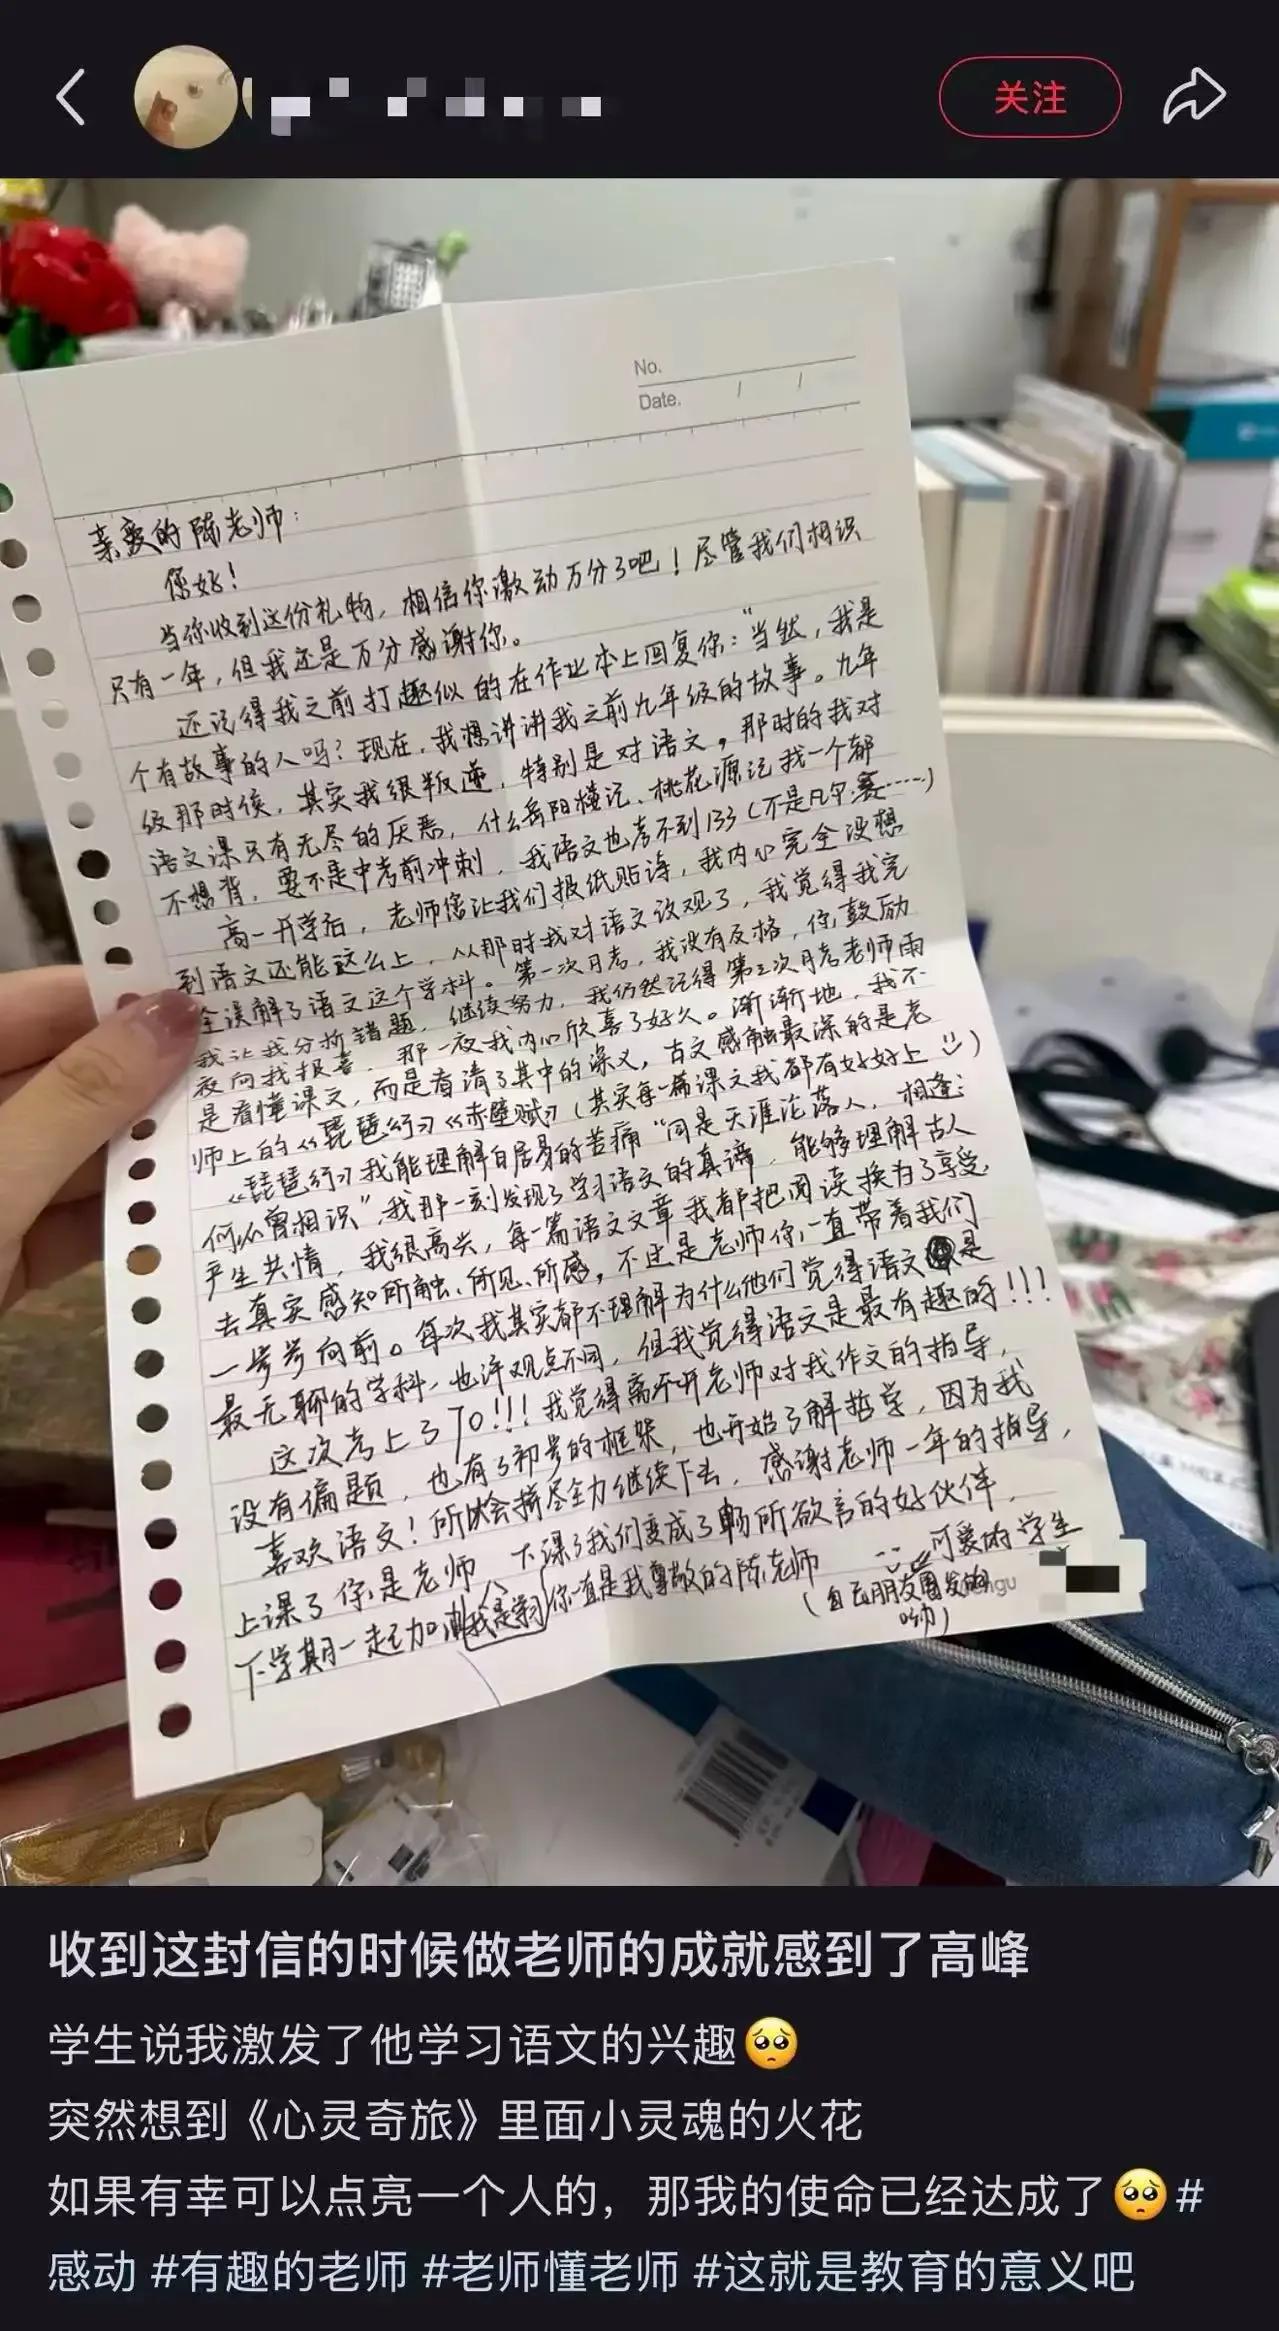 关注
No.
Date. / /
亲爱的陈老师：
您好！
当你收到这份礼物，相信你激动万分了吧！尽管我们相识
只有一年，但我还是万分感谢你。
还记得我之前打趣似的在作业本上回复你："当然，我是
个有故事的人吗？现在，我想讲讲我之前九年级的故事。九年
级那时侯，其实我很叛逆，特别是对语文，那时的我对
语文课只有无尽的厌恶，什么岳阳楼记、桃花源记我一个都
不想背，要不是中考前冲刺，我语文也考不到133（不是凡尔赛……）
高一开学后，老师您让我们报纸贴诗，我内心完全没想
到语文还能这么上，从那时我对语文改观了，我觉得我完
全误解了语文这个学科。第一次月考，我没有及格，你鼓励
我让我分析错题，继续努力，我仍然记得第三次月考老师雨
夜向我报喜，那一夜我内心欣喜了好久。渐渐地，我不
是看懂课文，而是看清了其中的深义，古文感触最深的是老
师上的《琵琶行》《赤壁赋》（其实每一篇课文我都有好好上）
《琵琶行》我能理解白居易的苦痛"同是天涯沦落人，相逢
何必曾相识"，我那一刻发现了学习语文的真谛，能够理解古人
产生共情，我很高兴，每一篇语文文章我都把阅读换为了享受，
去真实感知所触、所见、所感，不过是老师你一直带着我们
一步步向前。每次我其实都不理解为什么他们觉得语文是
最无聊的学科，也许观点不同，但我觉得语文是最有趣的！！！
这次考上了70！！！我觉得离不开老师对我作文的指导，
没有偏题，也有了初步的框架，也开始了解哲学，因为我
喜欢语文！所以会拼尽全力继续下去，感谢老师一年的指导，
上课了你是老师 下课了我们变成了畅所欲言的好伙伴，
下学期一起加油 我是学习 你一直是我尊敬的陈老师 可爱的学生
（自己朋友圈发的
哟）
收到这封信的时候做老师的成就感到了高峰
学生说我激发了他学习语文的兴趣🥺
突然想到《心灵奇旅》里面小灵魂的火花
如果有幸可以点亮一个人的，那我的使命已经达成了🥺#
感动 #有趣的老师 #老师懂老师 #这就是教育的意义吧